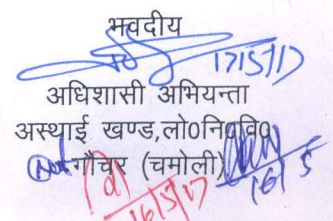 भवदीय
17/5/17
अधिशासी अभियन्ता
अस्थाई खण्ड,लो0नि0वि0
गौचर (चमोली)
16/5
16/5/17